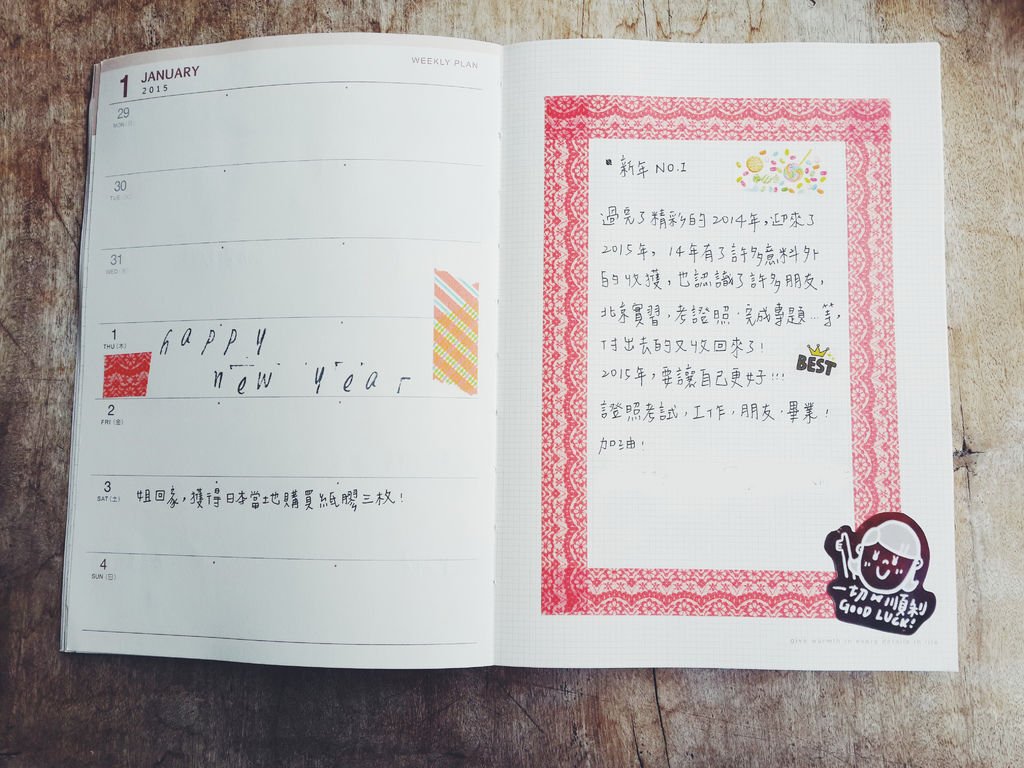 1 JANUARY
2015
WEEKLY PLAN
29
MON (月)
30
TUE (火)
31
WED (水)
1
THU (木)
happy
new year
2
FRI (金)
3
SAT (土)
姐回家,獲得日本當地購買紙膠三枚!
4
SUN (日)
新年 NO.1
過完了精彩的2014年,迎來了
2015年,14年有了許多意料外
的收獲,也認識了許多朋友,
北京實習,考證照、完成專題...等,
付出去的又收回來了!
BEST
2015年,要讓自己更好!!!
證照考試,工作,朋友、畢業!
加油!
一切順利
GOOD LUCK!
give warmth in every details in life